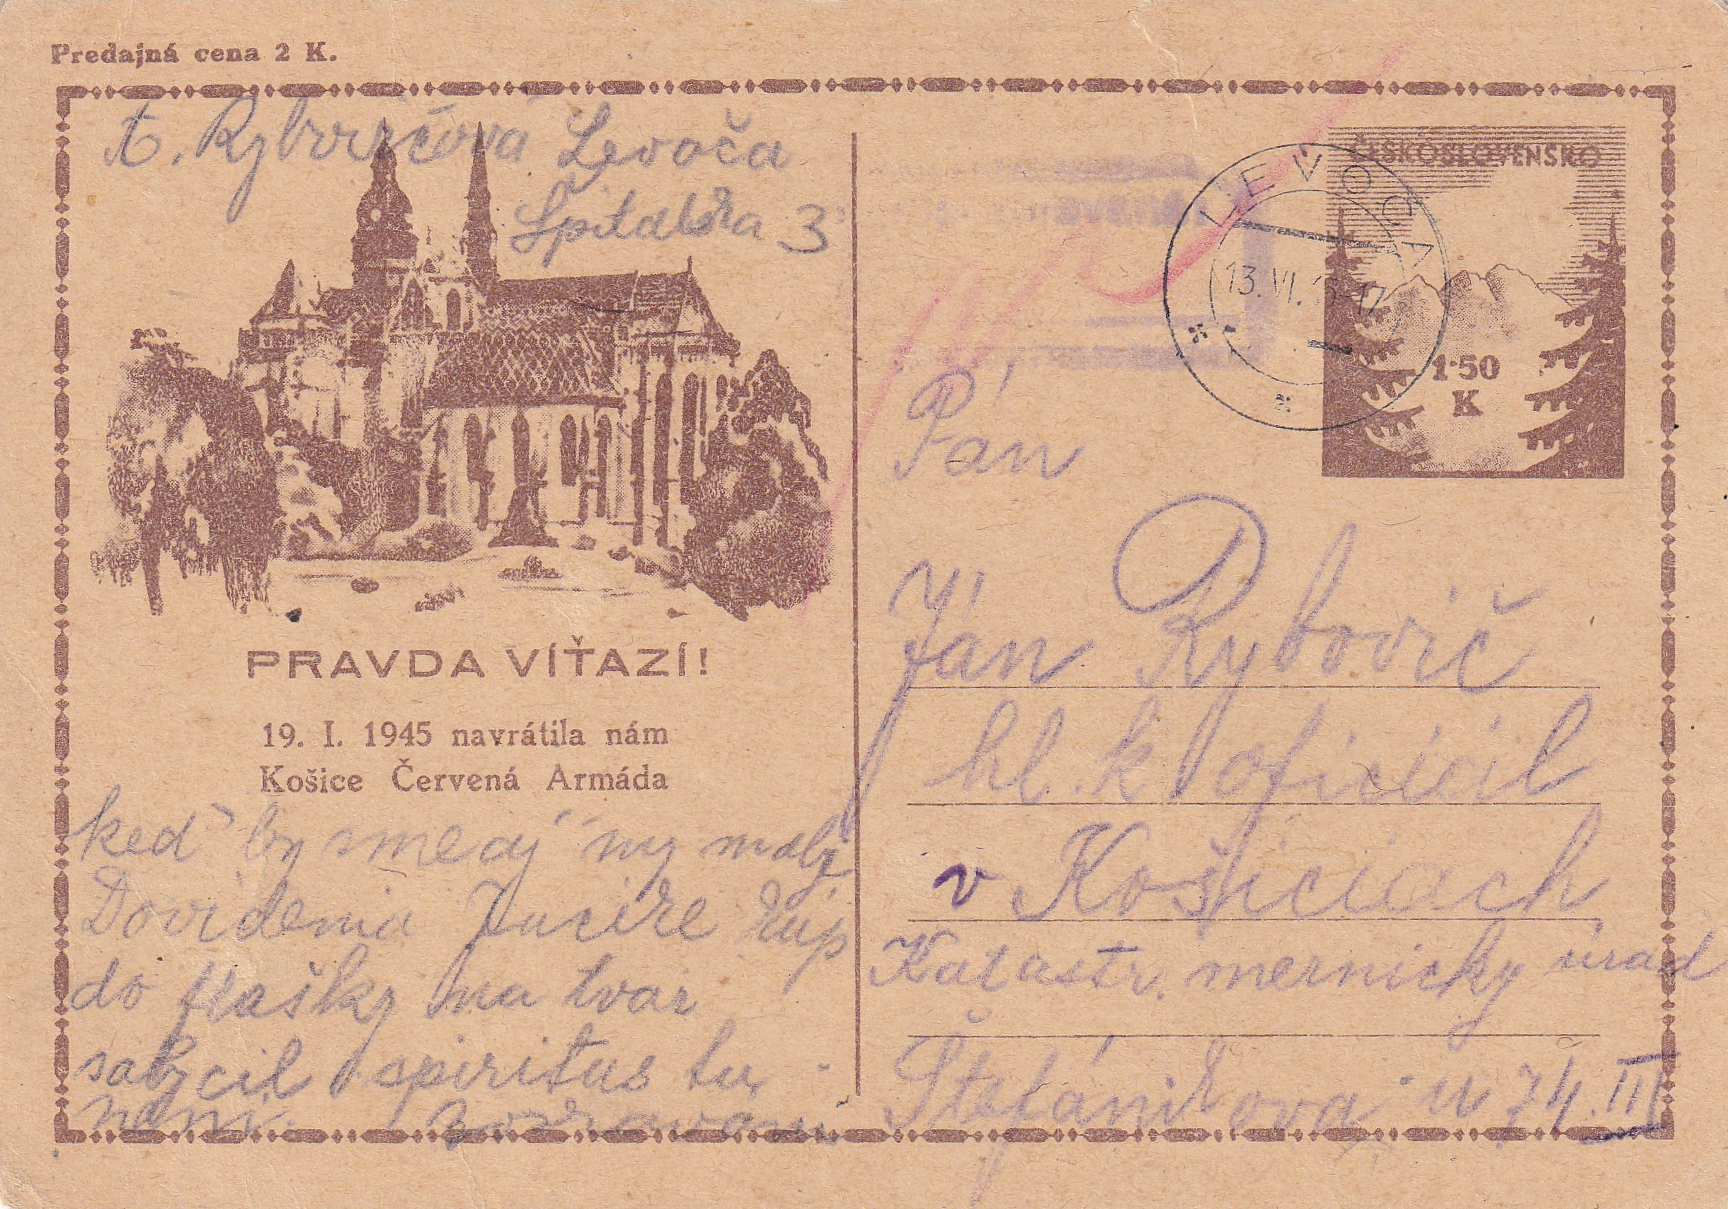 Predajná cena 2 K.
A. Rybovičová Levoča
Špitalska 3
PRAVDA VÍŤAZÍ!
19. I. 1945 navrátila nám
Košice Červená Armáda
keď by sme aj my mali
Dovidenia Jucike kúp
do flašky na tvar
salycil spiritus tu
není. Bozkávam
ČESKOSLOVENSKO
1·50
K
LEVOČA
13. VI.
Pán
Ján Rybovič
hl. k oficiál
v Košiciach
Katastr. mernícky úrad
Štefánikova u 74. III